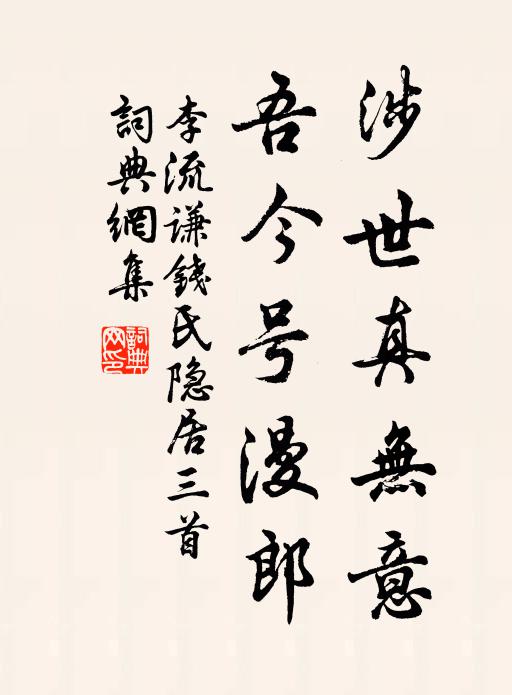 涉世真無意
吾今号漫郎
李流谦錢氏隐居三首
詞典網集
詞典
网印